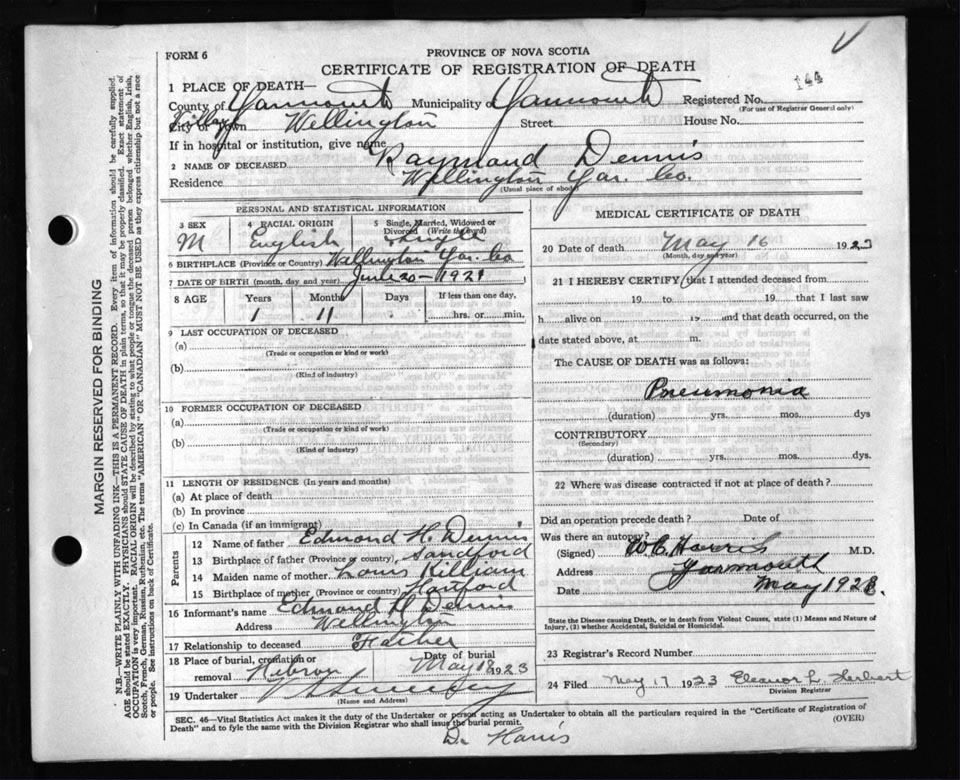 FORM 6
PROVINCE OF NOVA SCOTIA
CERTIFICATE OF REGISTRATION OF DEATH
144
1 PLACE OF DEATH—
County of Yarmouth Municipality of Yarmouth Registered No.
(For use of Registrar General only)
Village
City or Town Wellington Street House No.
If in hospital or institution, give name
2 NAME OF DECEASED Raymond Dennis
Residence Wellington Yar. Co.
(Usual place of abode)
PERSONAL AND STATISTICAL INFORMATION
3 SEX M
4 RACIAL ORIGIN English
5 Single, Married, Widowed or Divorced (Write the word) Single
6 BIRTHPLACE (Province or Country) Wellington Yar. Co
7 DATE OF BIRTH (month, day, and year) June 20 - 1921
8 AGE Years Months Days If less than one day,
1 11 hrs. or min.
9 LAST OCCUPATION OF DECEASED
(a)
(Trade or occupation or kind or work)
(b)
(Kind of industry)
10 FORMER OCCUPATION OF DECEASED
(a)
(Trade or occupation or kind or work)
(b)
(Kind of industry)
11 LENGTH OF RESIDENCE (In years and months)
(a) At place of death
(b) In province
(c) In Canada (if an immigrant)
Parents
12 Name of father Edmond H. Dennis
13 Birthplace of father (Province or country) Sandford
14 Maiden name of mother Killiam
15 Birthplace of mother (Province or country)
16 Informant's name Edmond H Dennis
Address Wellington
17 Relationship to deceased Father
18 Place of burial, cremation or removal Hebron Date of burial May 18 1923
19 Undertaker
(Name and Address)
MEDICAL CERTIFICATE OF DEATH
20 Date of death May 16 1923
(Month, day and year)
21 I HEREBY CERTIFY that I attended deceased from
19 to 19 that I last saw
h alive on 19 and that death occurred, on the
date stated above, at m.
The CAUSE OF DEATH was as follows:
Pneumonia
(duration) yrs. mos. dys
CONTRIBUTORY
(Secondary)
(duration) yrs. mos. dys.
22 Where was disease contracted if not at place of death?
Did an operation precede death? Date of
Was there an autopsy?
(Signed) W.C. Harris M.D.
Address Yarmouth
Date May 1923.
State the Disease causing Death, or in death from Violent Causes, state (1) Means and Nature of Injury, (2) whether Accidental, Suicidal or Homicidal.
23 Registrar's Record Number
24 Filed May 17 1923 Eleanor L. Herbert
Division Registrar
SEC. 46—Vital Statistics Act makes it the duty of the Undertaker or person acting as Undertaker to obtain all the particulars required in the "Certificate of Registration of
Death" and to fyle the same with the Division Registrar who shall issue the burial permit.
(OVER)
Dr Harris
MARGIN RESERVED FOR BINDING
N.B.—WRITE PLAINLY WITH UNFADING INK—THIS IS A PERMANENT RECORD. Every item of information should be carefully supplied.
AGE should be stated EXACTLY. PHYSICIANS should STATE CAUSE OF DEATH in plain terms, so that it may be properly classified. Exact statement of
OCCUPATION is very important. RACIAL ORIGIN will be described by stating to what people or tongue the deceased person belonged whether English, Irish,
Scotch, French, German, Russian, Ruthenian, etc. The terms "AMERICAN" OR "CANADIAN" MUST NOT BE USED as they express citizenship but not a race
or people. See instructions on back of Certificate.